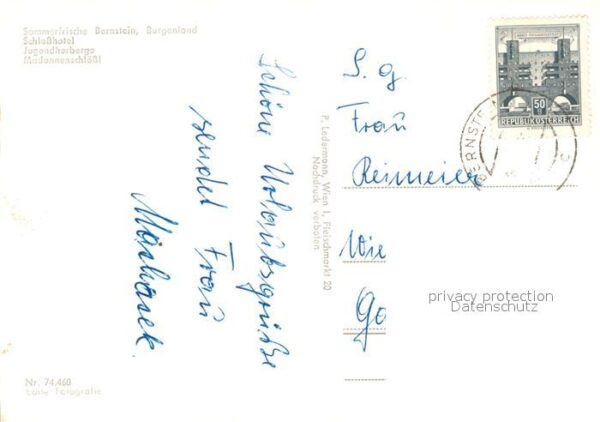 Sommerfrische Bernstein, Burgenland
Schloßhotel
Jugendherberge
Madonnenschlößl
Schöne Urlaubsgrüße
sendet Frau
P. Ledermann, Wien I, Fleischmarkt 20
Nachdruck verboten
S. g.
Frau
Reimeier
Wie
Go
50
REPUBLIK ÖSTERREICH
BERNSTE
privacy protection
Datenschutz
Nr. 74.460
Echte Fotografie